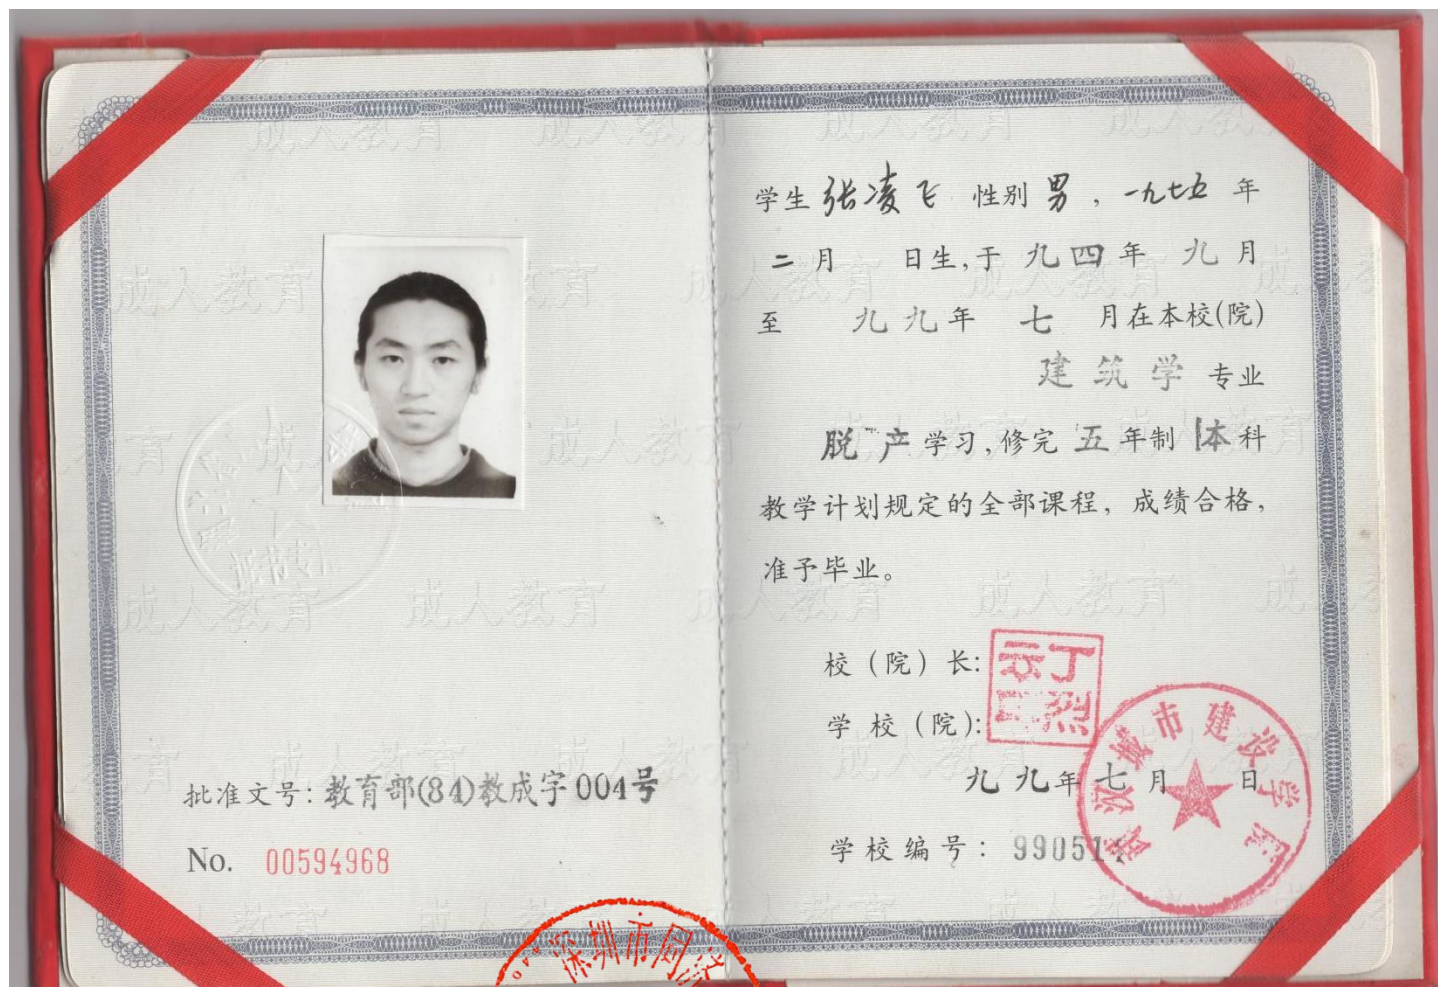 批准文号：教育部(84)教成字004号
No. 00594968
学生 张凌飞 性别 男 ，一九七五 年
二 月 日生，于 九四 年 九 月
至 九九 年 七 月在本校(院)
建筑学 专业
脱产 学习，修完 五 年制 本 科
教学计划规定的全部课程，成绩合格，
准予毕业。
校（院）长：
丁烈云印
学校（院）：
武汉城市建设学院
九九 年 七 月 日
学校编号：990514
深圳市同济
成人教育